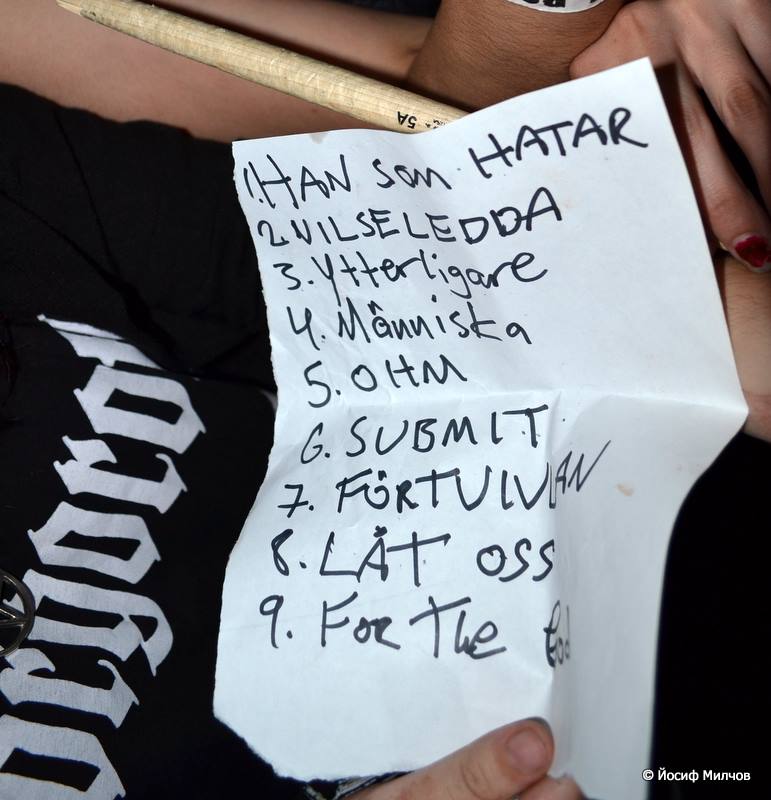 5A
1. HAN som HATAR
2. VILSELEDDA
3. Ytterligare
4. Människa
5. OHM
6. SUBMIT
7. FÖRTVIVLAN
8. LÅT OSS
9. For The God
© Йосиф Милчов